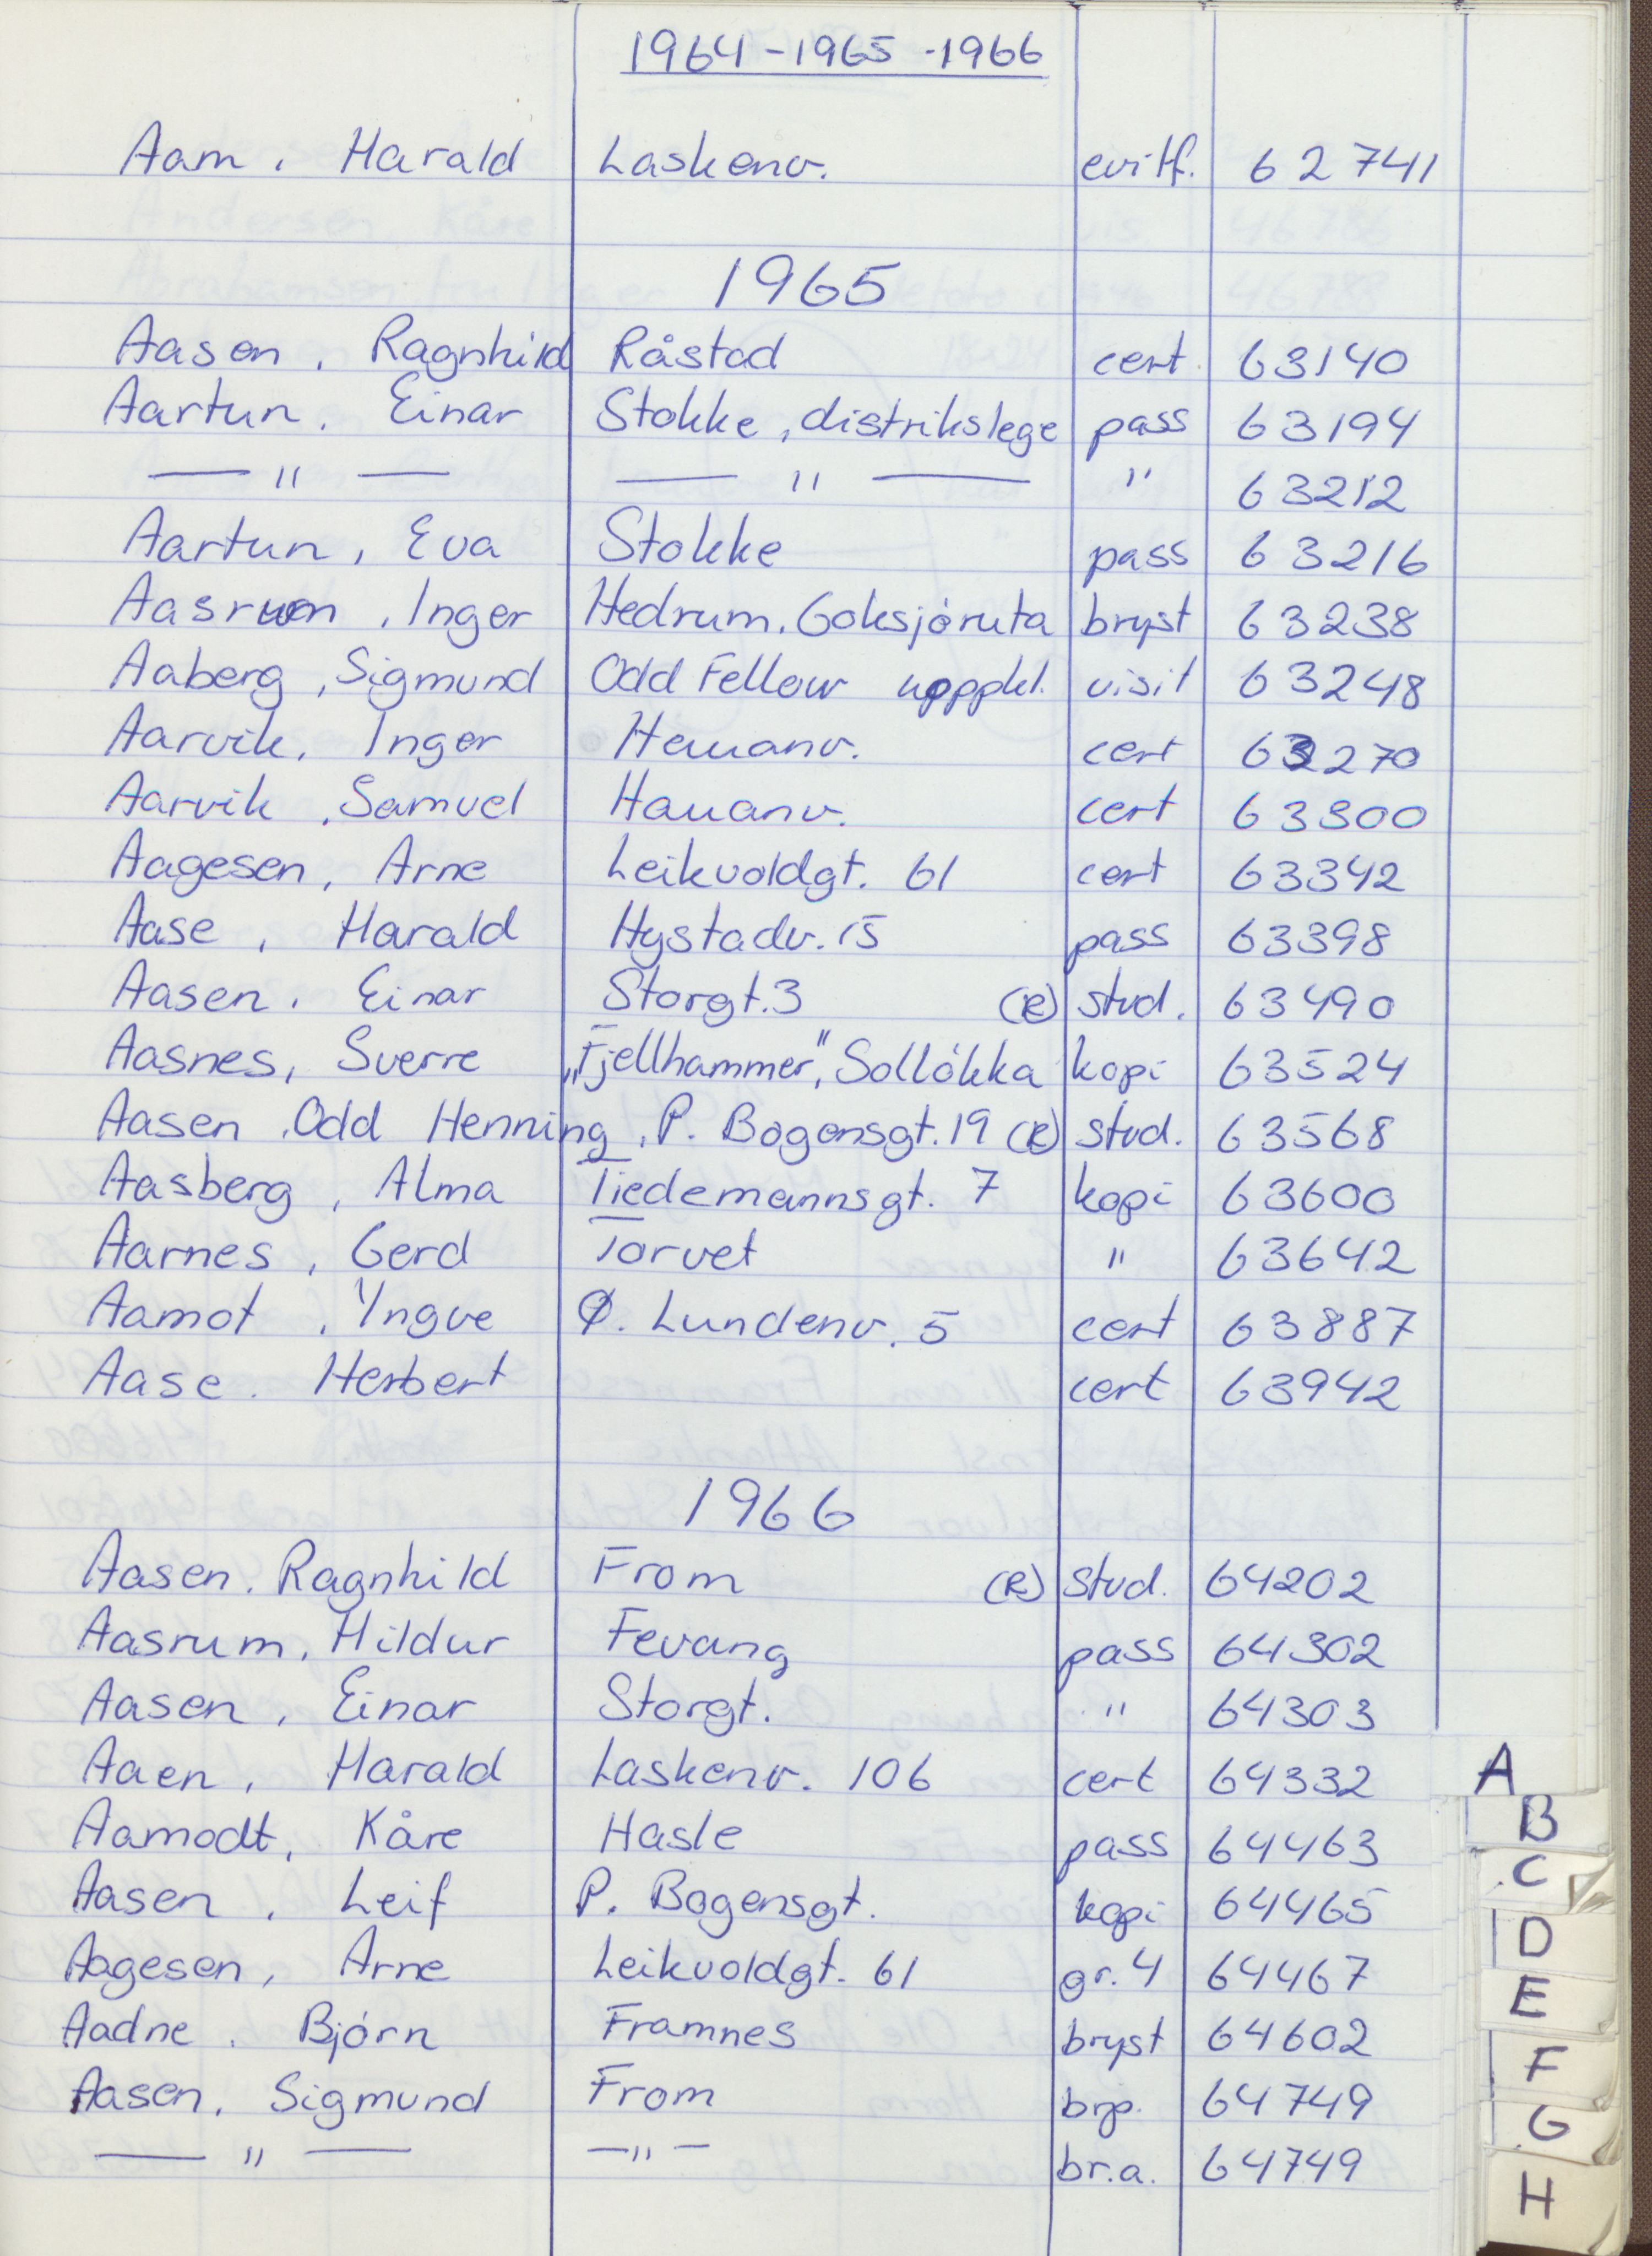 1964 - 1965 - 1966
Aam, Harald Laskenv. 62741
1965
Aasen, Ragnhild Råstad cert. 63140
Aartun, Einar Stokke, distrikslege pass 63194
— " — — " — " 63212
Aartun, Eva Stokke pass 63216
Inger Hedrum. Goksjøruta bryst 63238
Aaberg, Sigmund Odd Fellow visit 63248
Aarvik, Inger cert 63270
Aarvik, Samuel Hauanv. cert 63300
Aagesen, Arne Leikvoldgt. 61 cert 63342
Aase, Harald Hystadv. 15 pass 63398
Aasen, Einar Storgt. 3 (R) stud. 63490
Aasnes, Sverre „Fjellhammer", Solløkka kopi 63524
Aasen, Odd Henning, P. Bogensgt. 19 (R) stud. 63568
Aasberg, Alma Tiedemannsgt. 7 kopi 63600
Aarnes, Gerd Torvet " 63642
Aamot, Yngve Ø. Lundenv. 5 cert 63887
Aase, Herbert cert 63942
1966
Aasen, Ragnhild From (R) stud. 64202
Aasrum, Hildur Fevang pass 64302
Aasen, Einar Storgt. " 64303
Aaen, Harald Laskenv. 106 cert 64332
Aamodt, Kåre Hasle pass 64463
Aasen, Leif P. Bogensgt. kopi 64465
Aagesen, Arne Leikvoldgt. 61 gr. 4 64467
Aadne, Bjørn Framnes bryst 64602
Aasen, Sigmund From 64749
— " — — " — br.a. 64749
A
B
C
D
E
F
G
H